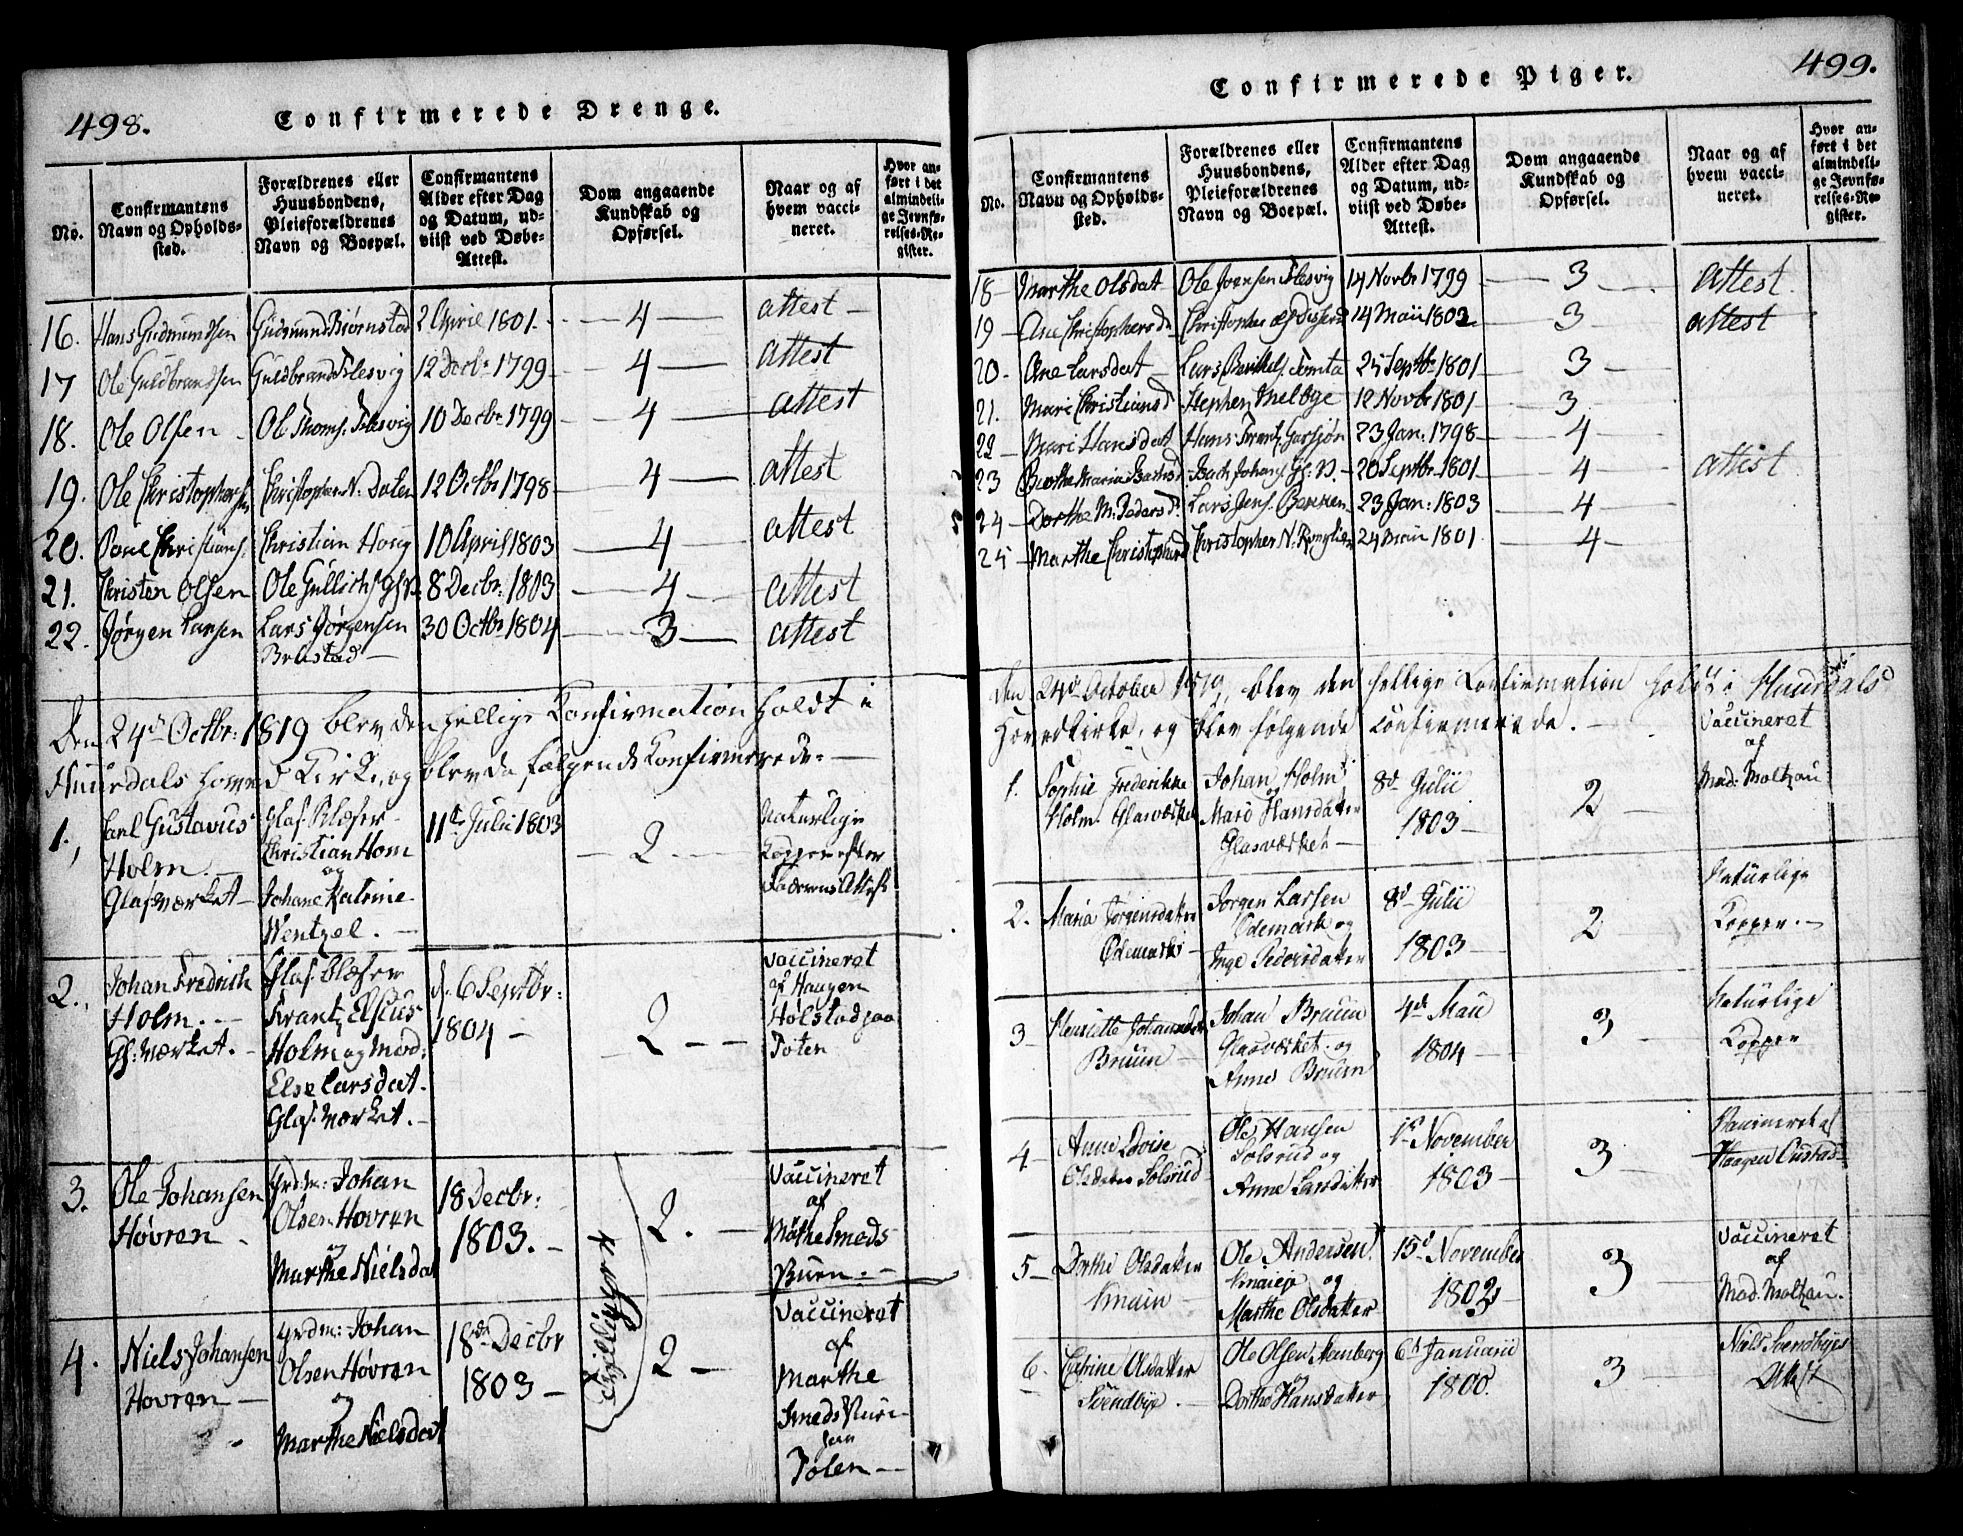 498.
Confirmerede Drenge.
No.
Confirmantens
Navn og Opholds-
sted.
Forældrenes eller
Huusbondens,
Pleieforældrenes
Navn og Boepæl.
Confirmantens
Alder efter Dag
og Datum, ud-
viist ved Døbe-
Attest.
Dom angaaende
Kundskab og
Opførsel.
Naar og af
hvem vacci-
neret.
Hvor an-
ført i det
almindeli-
ge Jevnfø-
relses-Re-
gister.
16. Hans Gudmundsen Gudmund Biørnstad 2 April 1801. 4 attest
17 Ole Guldbrandsen Guldbrand Flesvig 12 Decbr 1799 4 attest
18. Ole Olsen Ole Thoms. Flesvig 10 Decbr 1799 4 attest
19. Ole Christophersen Christopher N. Dalen 12 Octbr 1798 4 attest
20. Christians. Christian Houg 10 April 1803 4 attest
21. Christen Olsen Ole 8 Decbr: 1803 4 attest
22. Jørgen Larsen Lars Jørgensen 30 Octbr 1804 3 attest
Den 24d Octbr: 1819 blev den hellige Konfirmation holdt i
Huurdals hoved Kirke, og blev da følgende Konfirmerede.
1. Carl Gustavus
Holm.
Glasværket
Glas. Blæser
Christian Holm
og
Johane Katrine
Wentzel.
11te Julii 1803
2
Naturlige
Kopper efter
Faderens Attest
2. Johan Fredrich
Holm.
Gl: Værket.
Glas. blæser
Frantz
Holm og Mad:
Else Larsdat.
Glas. Værket.
d. 6 Septbr:
1804
2
Vaccineret
af Haagen
Holstad paa
Toten
3. Ole Johansen
Høvren
Grdm: Johan
Olsen Høvren
og
Marthe Nielsdat
18 Decbr:
1803.
Tvillinger
2.
Vaccineret
af
Marthe Smeds
4. Niels Johansen
Hovren
Grdm: Johan
Olsen Høvren
og
Marthe Nielsdat
18de Decbr
1803
2
Vaccineret
af
Marthe
paa
Toten
499.
Confirmerede Piger.
No.
Confirmantens
Navn og Opholds-
sted.
Forældrenes eller
Huusbondens,
Pleieforældrenes
Navn og Boepæl.
Confirmantens
Alder efter Dag
og Datum, ud-
viist ved Døbe-
Attest.
Dom angaaende
Kundskab og
Opførsel.
Naar og af
hvem vacci-
neret.
Hvor an-
ført i det
almindeli-
ge Jevnfø-
relses-Re-
gister.
18 Marthe Olsdat Ole Iversen Flesvig 14 Novbr 1799 3 attest
19 Ane Christophersd Christopher 14 Maii 1802 3 attest
20. Ane Larsdat Lars Tømta 25 Septbr 1801 3
21. Mari Christiansd Stephen Melbye 12 Novbr 1801 3
22 Mari Hansdat Hans Frantz Garsjøn 23 Jan: 1798 4
23 Berthe Maria 20 Septbr. 1801 4 attest
24 Dorthe M. Pedersd. Lars Jens. 23 Jan: 1803 4
25 Marthe Christophersd Christopher N. 24 Maii 1801 4
Den 24d October 1819, blev den hellige Confirmation holdt i Huurdals
Hovedkirke, og blev følgende Confirmerede.
1. Sophie Frederikke
Holm. Glasværket
Johan Holm
og
Mari Hansdatter
Glasværket
8d Julii
1803
2
Vaccineret
af
Mad. Moltzau
2. Maria Jørgensdatter
Ødemarks
Jørgen Larsen
Ødemark og
Inge Pedersdatter
8d Julii
1803
2
Naturlige
Kopper.
3 Henriette Johansdat
Bruun
Johan Bruun
Glasværket og
Anne Bruun
4de Maii
1804
3
Naturlige
Kopper
4 Anne Lovise
Olsdatter Solsrud
Ole Hansen
Solsrud og
Anne Larsdatter
1d November
1803
3
Vaccineret af
Haagen
5 Dorthe Olsdatter
Knain
Ole Andersen
og
Marthe Olsdatter
15d November
1802
3
Vaccineret
af
Mad. Moltzau.
6. Catrine Olsdatter
Svendbye.
Ole Olsen
og
Dorthe Hansdatter
6d Januarii
1800.
3
Niels Svendbyes
Attest